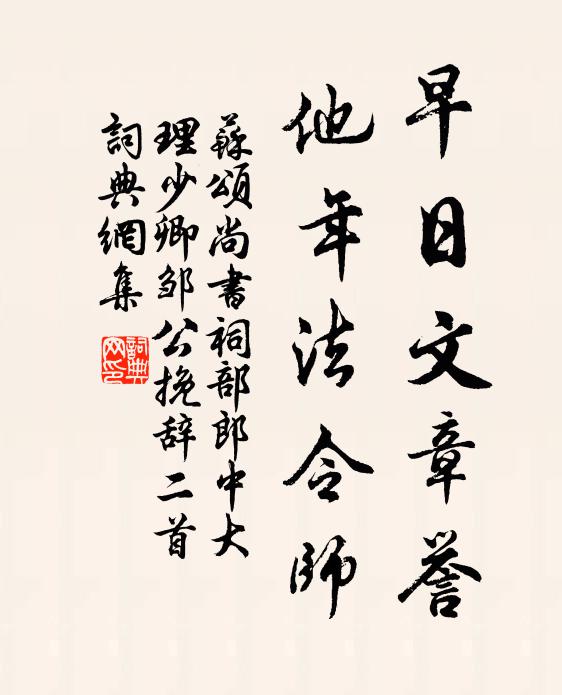 早日文章誉
他年法令師
蘇頌尚書祠部郎中大
理少卿邹公挽辞二首
詞典網集
詞典网印